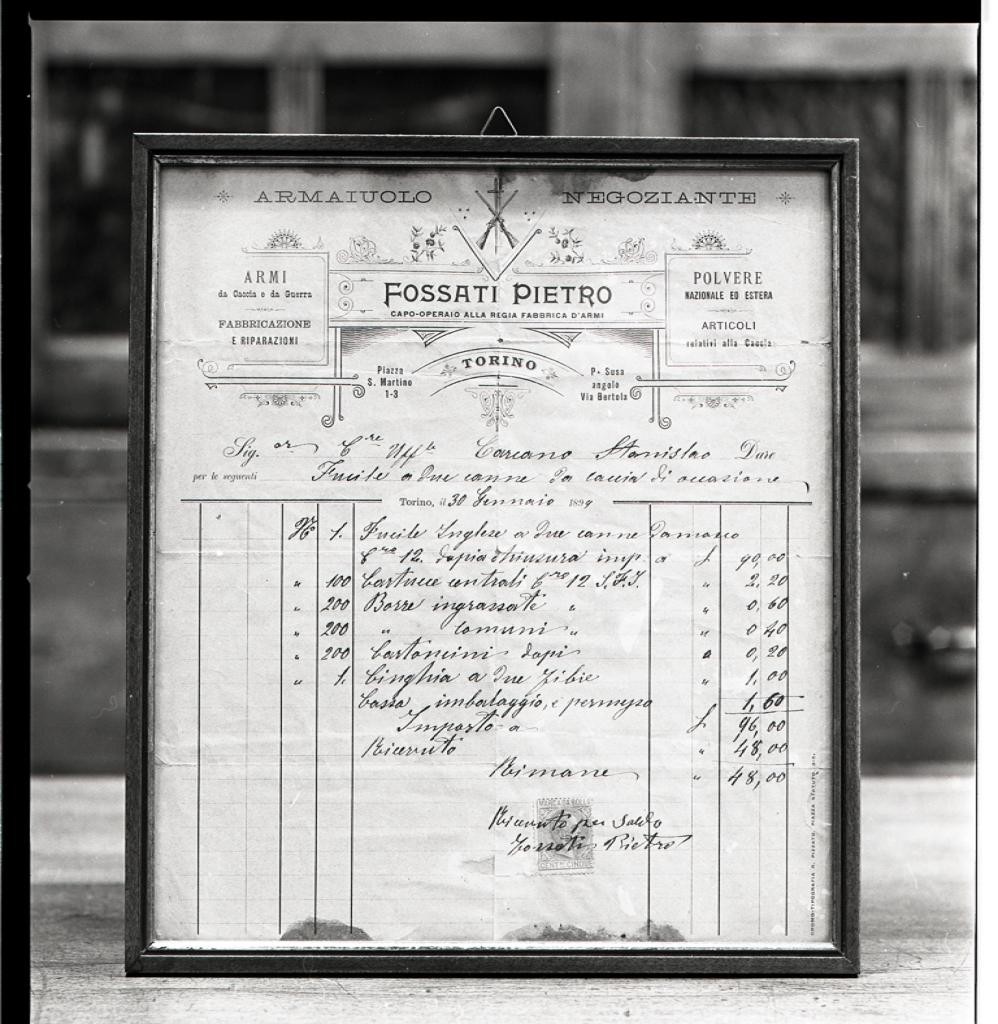 ARMAIUOLO NEGOZIANTE
ARMI
da Caccia e da Guerra
FABBRICAZIONE
E RIPARAZIONI
FOSSATI PIETRO
CAPO-OPERAIO ALLA REGIA FABBRICA D'ARMI
POLVERE
NAZIONALE ED ESTERA
ARTICOLI
relativi alla Caccia
TORINO
Piazza
S. Martino
1-3
P. Susa
angolo
Via Bertola
Sig. or C.re Uff.le Carcano Stanislao Dare
per le seguenti Fucile a due canne da caccia di occasione
Torino, il 30 Gennaio 1899
No 1. Fucile Inglese a due canne Damasco
C.re 12. dopia chiusura imp. a £ 90,00
" 100 Cartucce centrali C.re 12 S.F.S. " 2,20
" 200 Borre ingrassate " " 0,60
" 200 " comuni " " 0,40
" 200 Cartoncini dopi " 0,20
" 1. Cinghia a due fibie " 1,00
Cassa imbalaggio, e permesso 1,60
Importo a £ 96,00
Ricevuto " 48,00
Rimane " 48,00
MARCA DA BOLLO
Ricevuto per saldo
Fossati Pietro
CENT. CINQUE
CROMO-TIPOGRAFIA PIZZATO, PIAZZA STATUTO